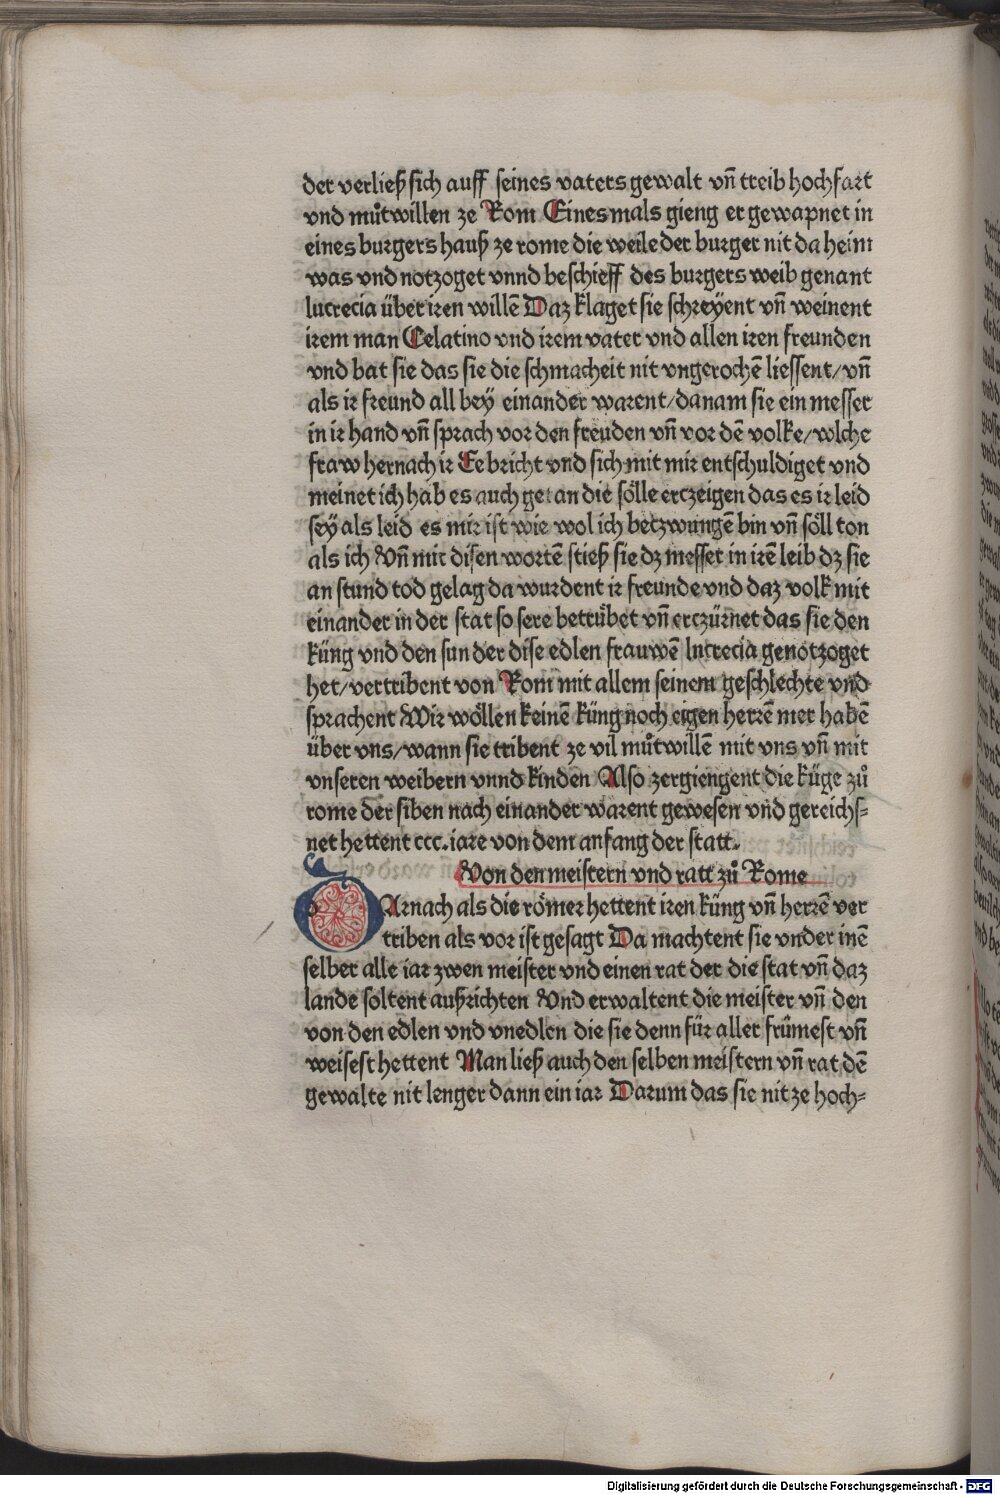 der verließ sich auff seines vaters gewalt vn̄ treib hochfart
vnd můtwillen ze Rom Einesmals gieng er gewapnet in
eines burgers hauß ze rome die weile der burger nit da heim
was vnd notzoget vnnd beschieff des burgers weib genant
lucrecia über iren willē Daz klaget sie schreyent vn̄ weinent
irem man Celatino vnd irem vater vnd allen iren freunden
vnd bat sie das sie die schmacheit nit vngerochē liessent/ vn̄
als ir freund all bey einander warent/ da nam sie ein messer
in ir hand vn̄ sprach vor den freuden vn̄ vor dē volke/ wlche
fraw hernach ir Ee bricht vnd sich mit mir entschuldiget vnd
meinet ich hab es auch getan die sölle erczeigen das es ir leid
sey als leid es mir ist wie wol ich betzwungē bin vn̄ söll ton
als ich Vn̄ mit disen wortē stieß sie dz messer in irē leib dz sie
an stund tod gelag da wurdent ir freunde vnd daz volk mit
einander in der stat so sere betrübet vn̄ erczürnet das sie den
küng vnd den sun der dise edlen frauwē lucrecia genotzoget
het/ vertribent von Rom mit allem seinem geschlechte vnd
sprachent Wir wöllen keinē küng noch eigen herrē mer habē
über vns/ wann sie tribent ze vil můtwillē mit vns vn̄ mit
vnseren weibern vnnd kinden Also zergiengent die küge zů
rome der siben nach einander warent gewesen vnd gereichs-
net hettent ccc. iare von dem anfang der statt.
Von den meistern vnd ratt zů Rome
DArnach als die römer hettent iren küng vn̄ herrē ver
triben als vor ist gesagt Da machtent sie vnder inē
selber alle iar zwen meister vnd einen rat der die stat vn̄ daz
lande soltent außrichten Vnd erwaltent die meister vn̄ den
von den edlen vnd vnedlen die sie denn für aller frůmest vn̄
weisest hettent Man ließ auch den selben meistern vn̄ rat dē
gewalte nit lenger dann ein iar Darum das sie nit ze hoch-
Digitalisierung gefördert durch die Deutsche Forschungsgemeinschaft - DFG